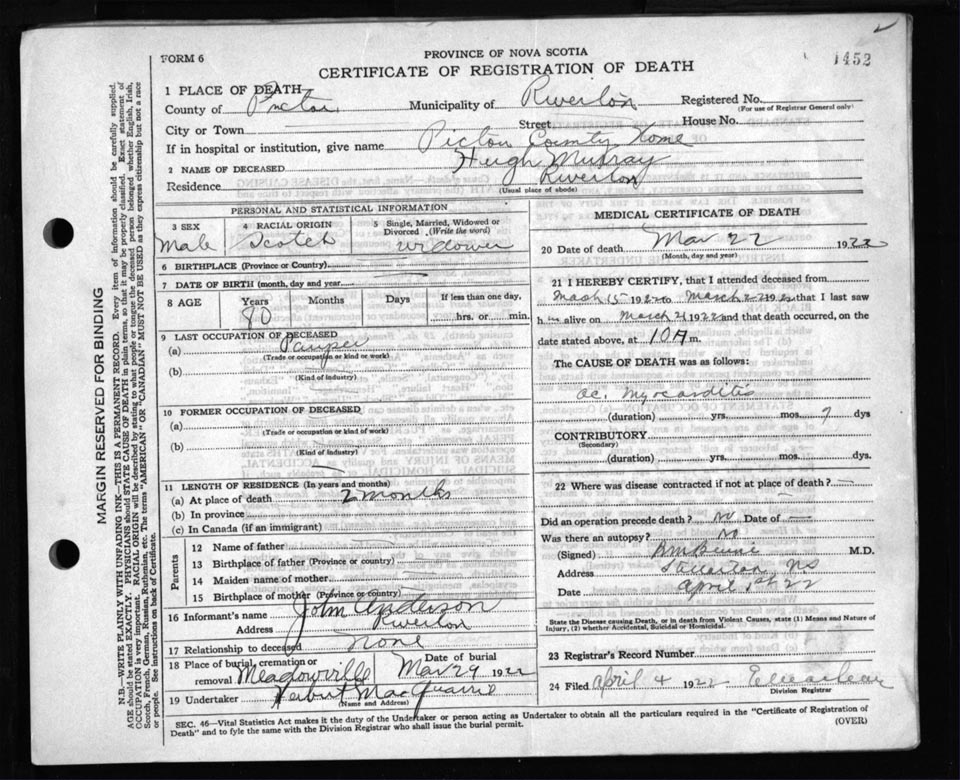 FORM 6
PROVINCE OF NOVA SCOTIA
CERTIFICATE OF REGISTRATION OF DEATH
1452
MARGIN RESERVED FOR BINDING
N.B.—WRITE PLAINLY WITH UNFADING INK—THIS IS A PERMANENT RECORD. Every item of information should be carefully supplied.
AGE should be stated EXACTLY. PHYSICIANS should STATE CAUSE OF DEATH in plain terms, so that it may be properly classified. Exact statement of
OCCUPATION is very important. RACIAL ORIGIN will be described by stating to what people or tongue the deceased person belonged whether English, Irish,
Scotch, French, German, Russian, Ruthenian, etc. The terms "AMERICAN" OR "CANADIAN" MUST NOT BE USED as they express citizenship but not a race
or people. See instructions on back of Certificate.
1 PLACE OF DEATH
County of Pictou Municipality of Riverton Registered No.
(For use of Registrar General only)
City or Town Street House No.
If in hospital or institution, give name Pictou County Home
2 NAME OF DECEASED Hugh Murray
Residence Riverton
(Usual place of abode)
PERSONAL AND STATISTICAL INFORMATION
3 SEX 4 RACIAL ORIGIN 5 Single, Married, Widowed or Divorced (Write the word)
Male Scotch widower
6 BIRTHPLACE (Province or Country)
7 DATE OF BIRTH (month, day and year)
8 AGE Years Months Days If less than one day,
80 hrs. or min.
9 LAST OCCUPATION OF DECEASED
(a) Pauper
(Trade or occupation or kind or work)
(b)
(Kind of industry)
10 FORMER OCCUPATION OF DECEASED
(a)
(Trade or occupation or kind of work)
(b)
(Kind of industry)
11 LENGTH OF RESIDENCE (In years and months)
(a) At place of death 2 months
(b) In province
(c) In Canada (if an immigrant)
Parents
12 Name of father
13 Birthplace of father (Province or country)
14 Maiden name of mother
15 Birthplace of mother (Province or country)
16 Informant's name John Anderson
Address Riverton
17 Relationship to deceased none
18 Place of burial, cremation or removal Meadowville Date of burial Mar 29 1922
19 Undertaker Herbert MacQuarrie
(Name and Address)
MEDICAL CERTIFICATE OF DEATH
20 Date of death Mar 22 1922
(Month, day and year)
21 I HEREBY CERTIFY, that I attended deceased from
March 15 1922 to March 1922 that I last saw
h alive on March 21 1922 and that death occurred, on the
date stated above, at 10 A m.
The CAUSE OF DEATH was as follows:
ac. Myocarditis
(duration) yrs. mos. 7 dys
CONTRIBUTORY
(Secondary)
(duration) yrs. mos. dys.
22 Where was disease contracted if not at place of death? —
Did an operation precede death? No Date of —
Was there an autopsy? No
(Signed) M.D.
Address Stellarton NS
Date April 1st 22
State the Disease causing Death, or in death from Violent Causes, state (1) Means and Nature of
Injury, (2) whether Accidental, Suicidal or Homicidal.
23 Registrar's Record Number
24 Filed April 4 1922
Division Registrar
SEC. 46—Vital Statistics Act makes it the duty of the Undertaker or person acting as Undertaker to obtain all the particulars required in the "Certificate of Registration of
Death" and to fyle the same with the Division Registrar who shall issue the burial permit. (OVER)